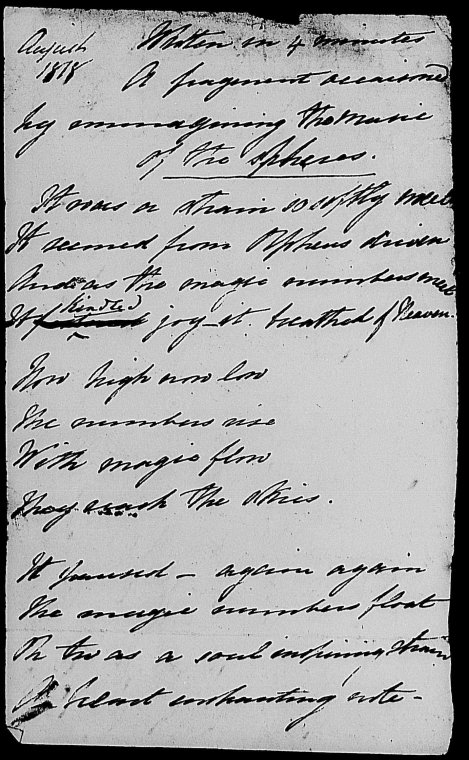 August Written in 4 minutes
1818 A fragment occasioned
by immagining the Music
of the Spheres.
It was a strain so softly
It seemed from Orpheus
And as the magic numbers meet
It kindled joy - it breathed of Heaven.
Now high now low
The numbers rise
With magic flow
They reach the skies.
It paused - again again
The magic numbers float
Oh twas a soul inspiring strain
A heart enchanting note -